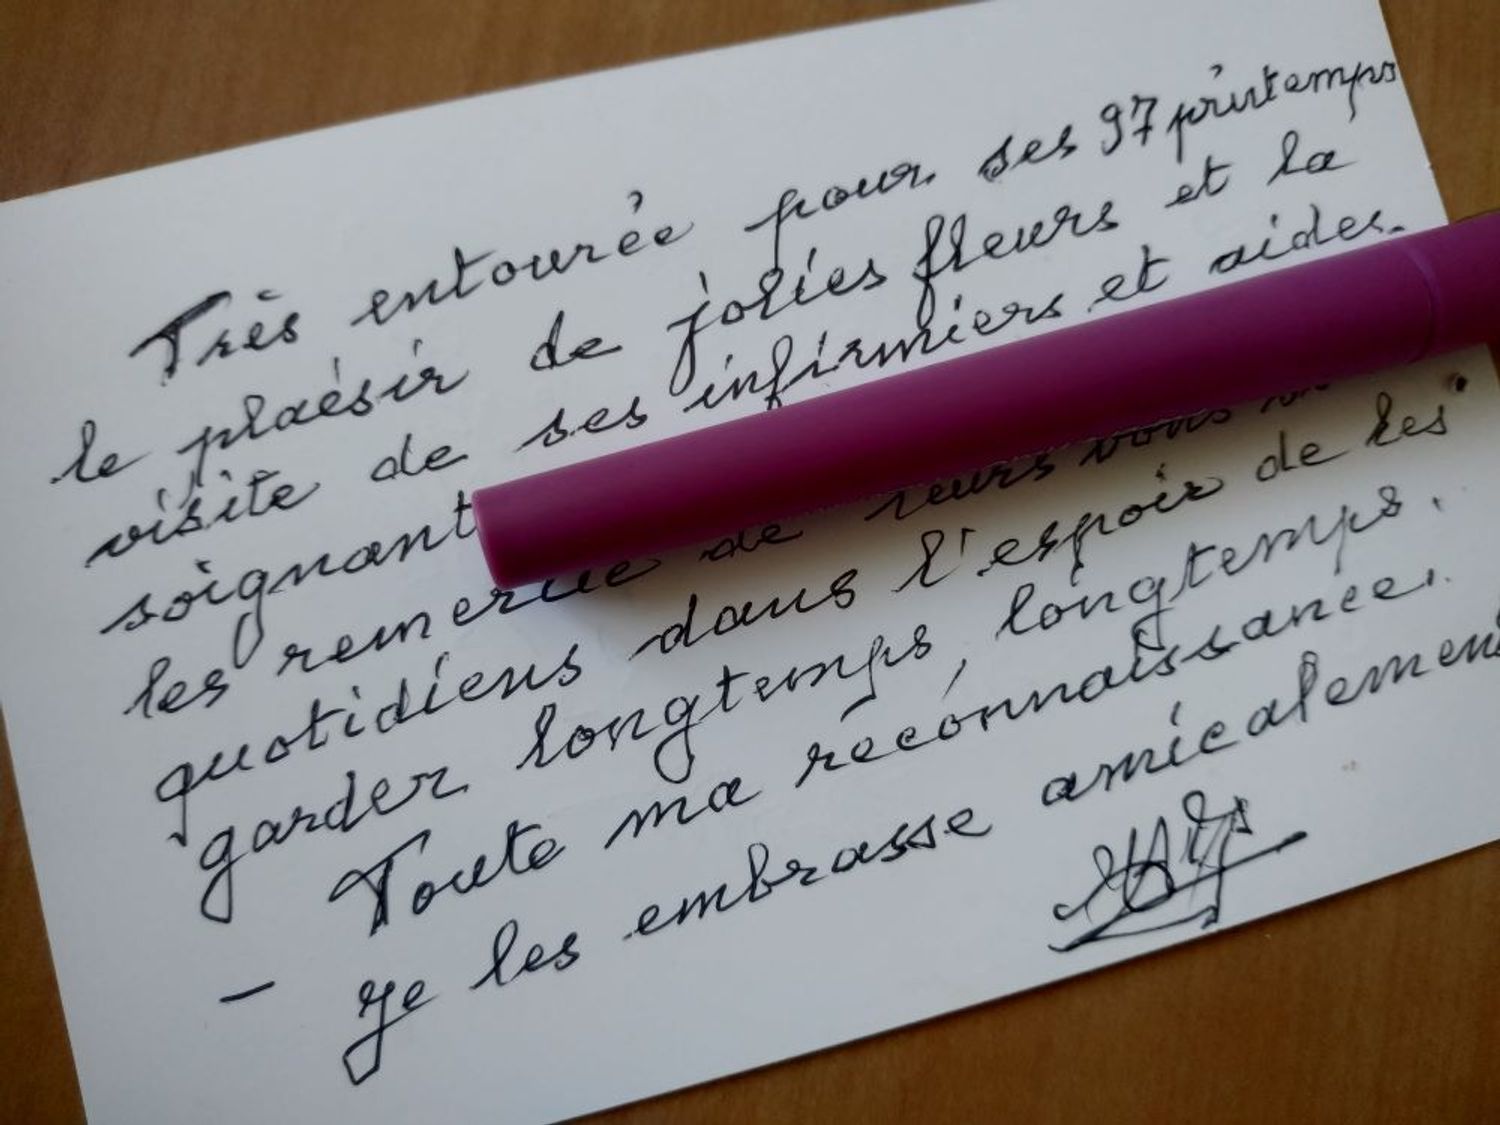 Très entourée pour ses 97 printemps
le plaisir de jolies fleurs et la
visite de ses infirmiers et aides.
soignant
les remercie de leurs bons
quotidiens dans l'espoir de les
garder longtemps, longtemps.
Toute ma reconnaissance.
- Je les embrasse amicalement